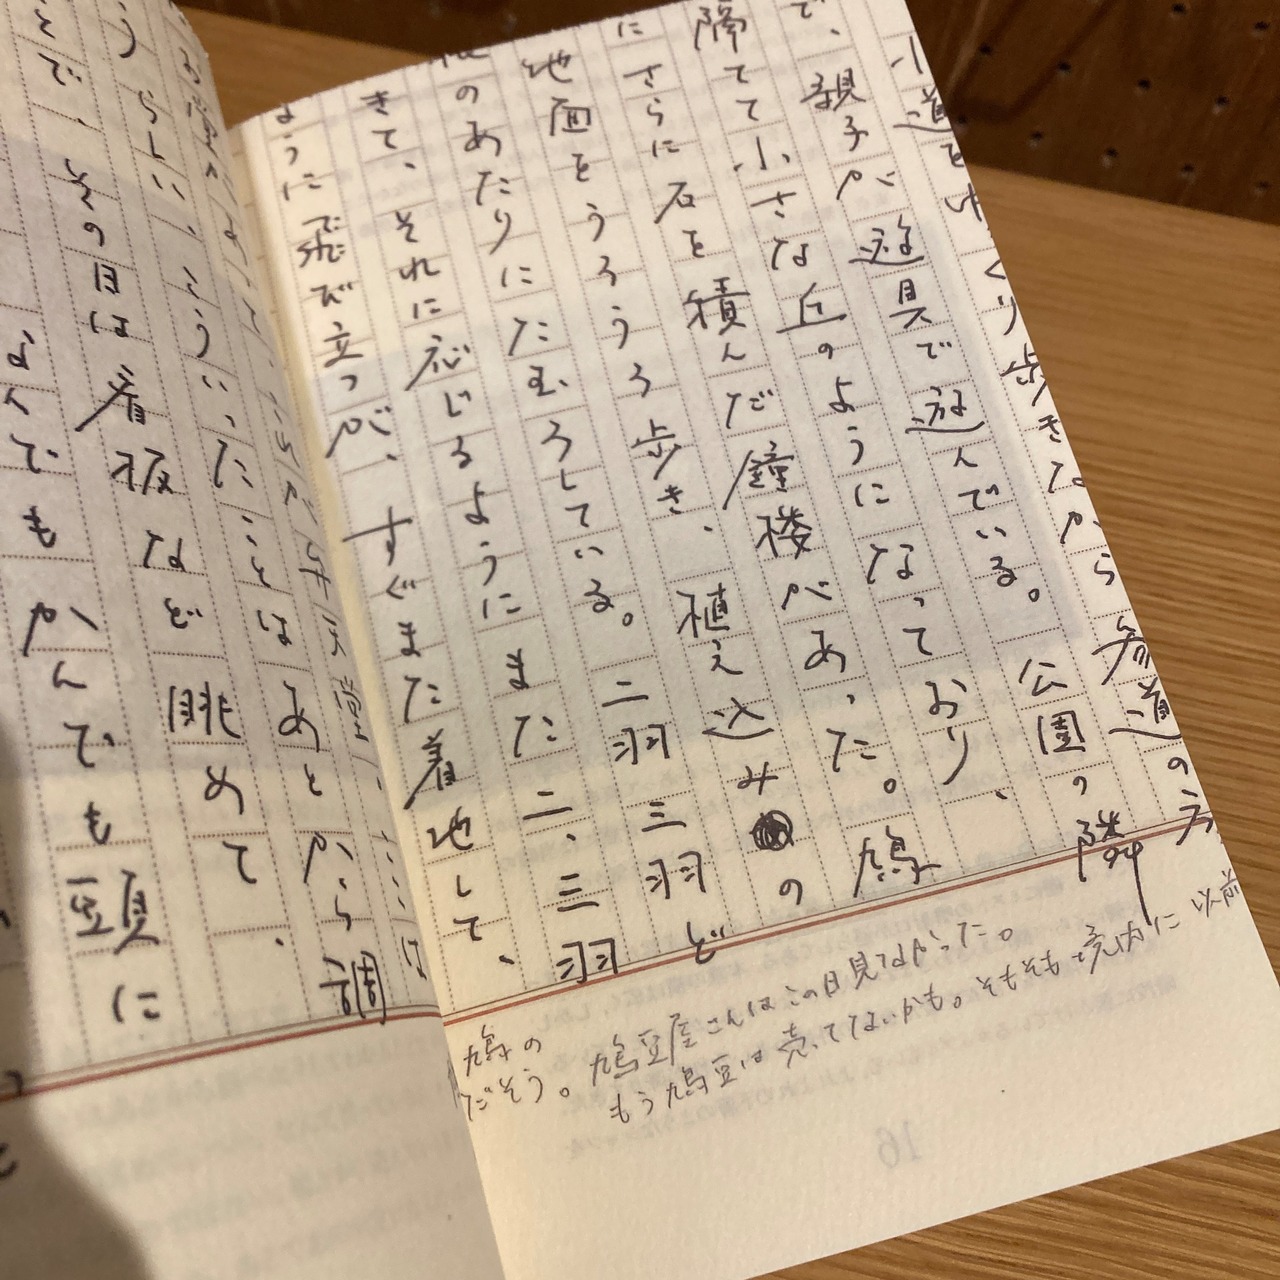 小道をゆっくり歩きながら参道の方
で、親子が遊具で遊んでいる。公園の隣
隔てて小さな丘のようになっており、
にさらに石を積んだ鐘楼があった。鳩
地面をうろうろ歩き、植え込みの
のあたりにたむろしている。二羽三羽ど
きて、それに応じるようにまた二、三羽
ように飛び立つが、すぐまた着地して、
鳩の
だそう。
鳩豆屋さんはこの日見なかった。
もう鳩豆は売ってないかも。そもそも境内に以前
うらしい、こういったことはあとから調
とで、その日は看板など眺めて、
なんでもかんでも頭に